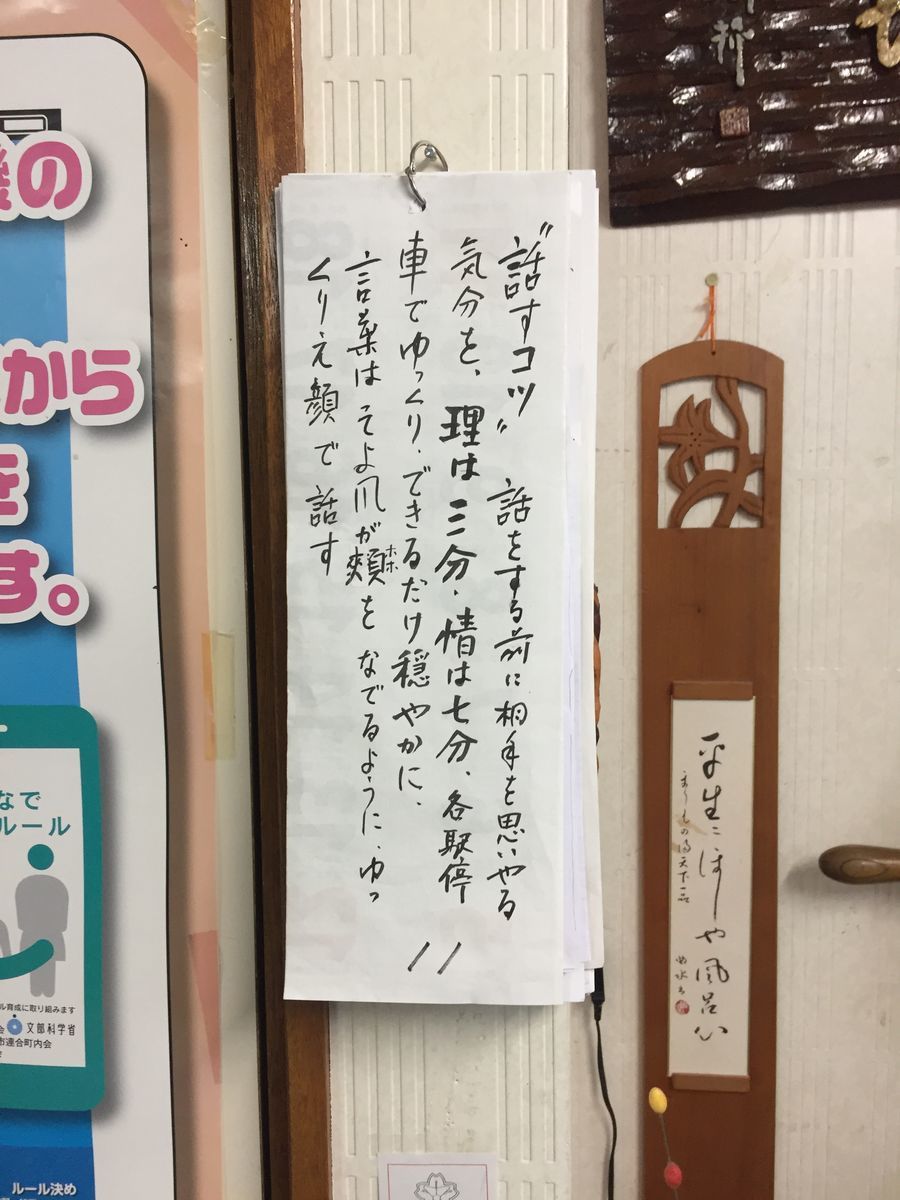 〝話すコツ〟 話をする前に相手を思いやる
気分を、理は三分、情は七分、各駅停
車でゆっくり、できるだけ穏やかに、
言葉は そよ風が頬を なでるように、ゆっ
くりえ顔で 話す
ホホ
の
から
を
す。
なで
ルール
ル育成に取り組みます
会 文部科学省
市連合町内会
ルール決め